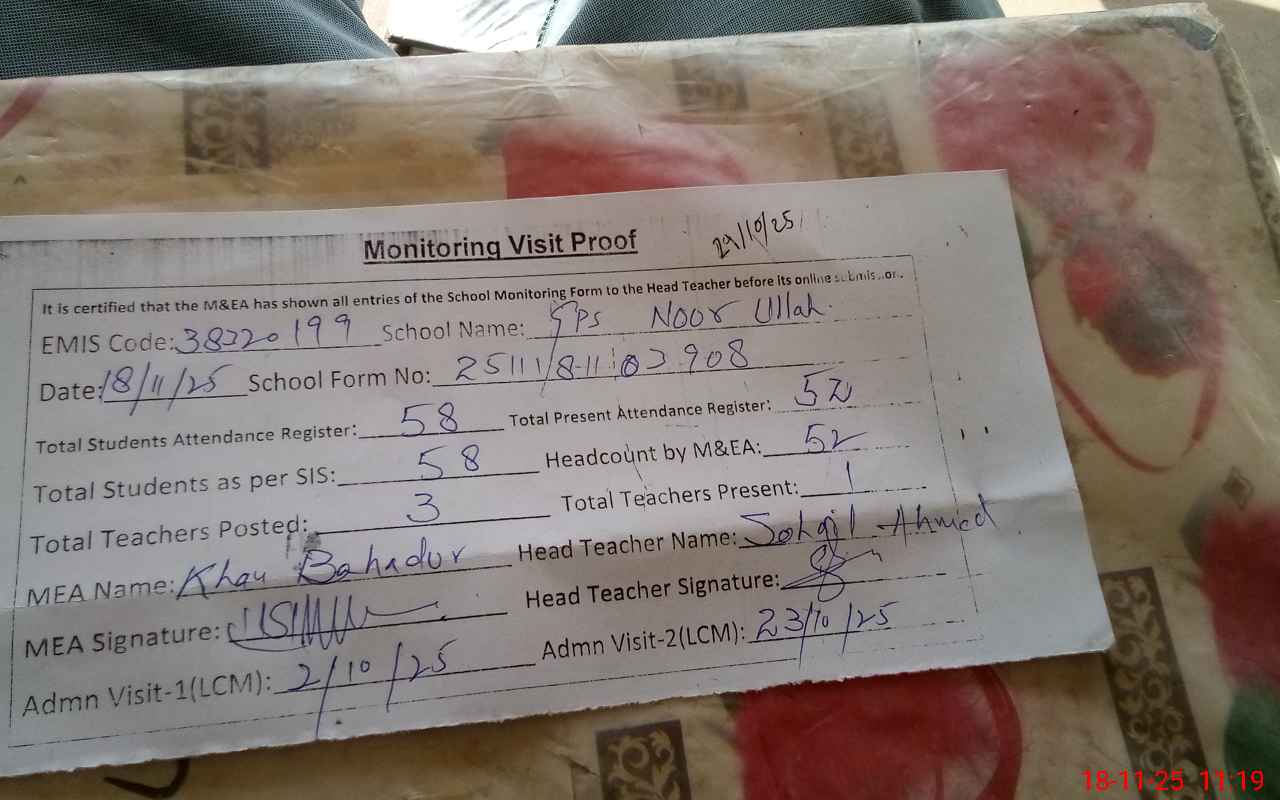 Monitoring Visit Proof 29/10/25
It is certified that the M&EA has shown all entries of the School Monitoring Form to the Head Teacher before its online submis..or.
EMIS Code: 38220199 School Name: GPS Noor Ullah.
Date: 18/11/25 School Form No: 25111/8-1102908
Total Students Attendance Register: 58 Total Present Attendance Register: 52
Total Students as per SIS: 58 Headcount by M&EA: 52
Total Teachers Posted: 3 Total Teachers Present: 1
MEA Name: Khan Bahadur Head Teacher Name: Sohail Ahmed
MEA Signature: Head Teacher Signature:
Admn Visit-1(LCM): 2/10/25 Admn Visit-2(LCM): 23/10/25
18-11-25 11:19